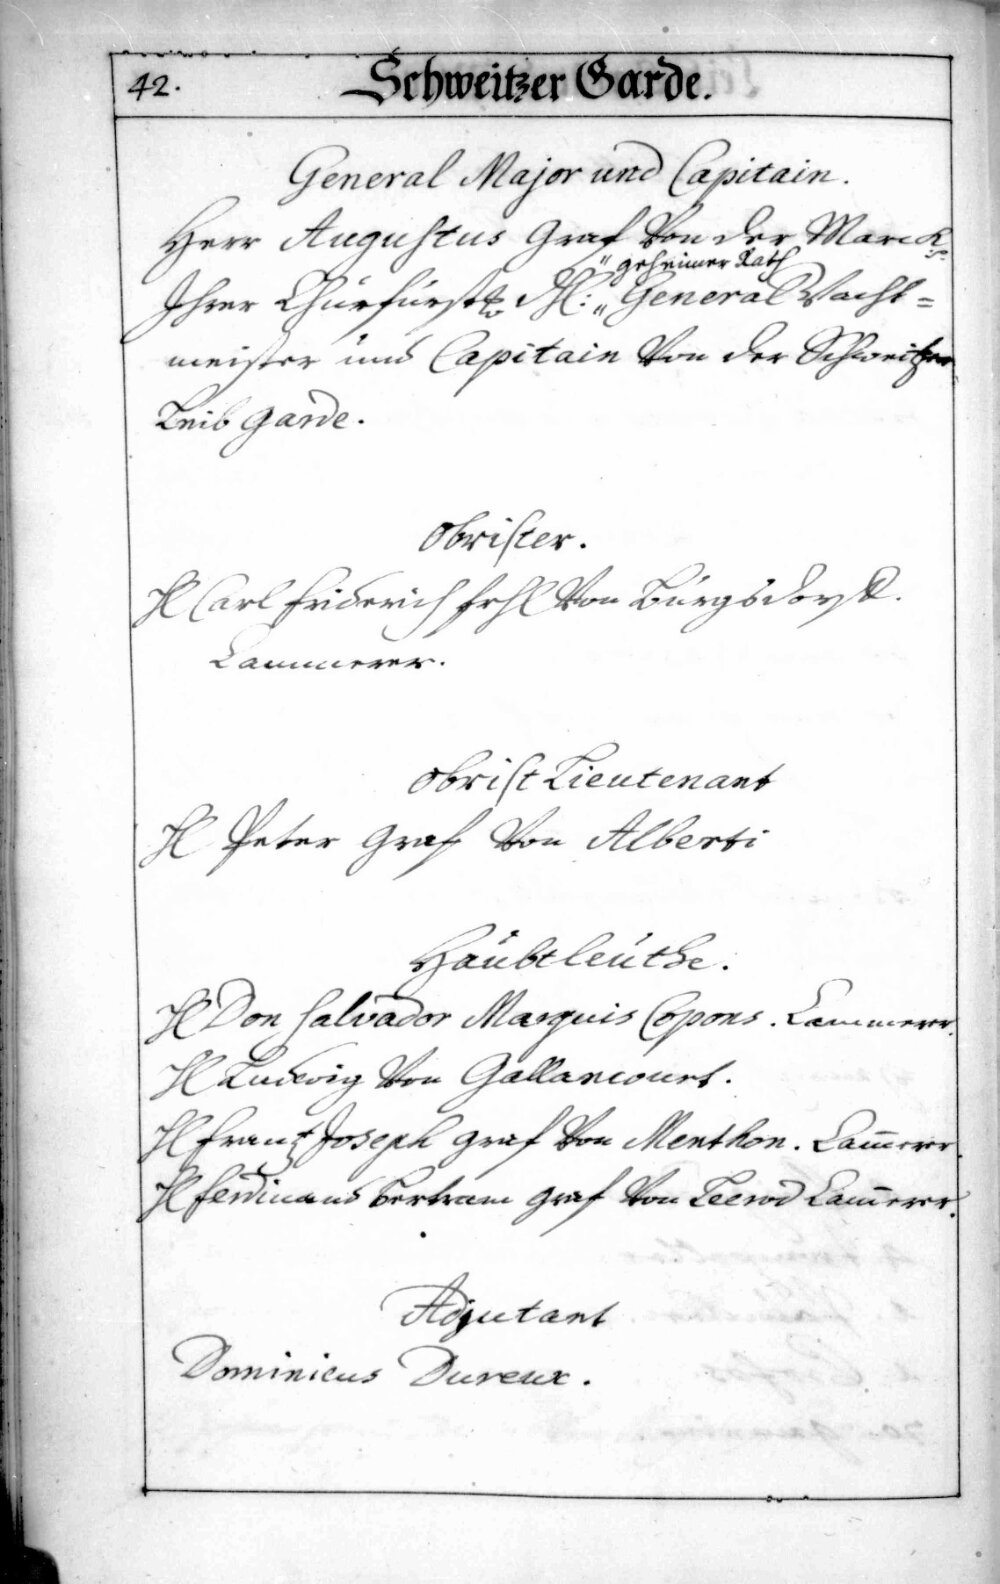 42.
Schweitzer Garde.
General Major und Capitain.
Herr Augustus Graf Von der Marck
" geheimer Rath
Ihrer Churfürstl. Dhl: " General Wacht=
meister und Capitain Von der Schweitzer
Leib Garde.
Obrister.
H Carl Friderich frhl Von Burgsdorff.
Cammerer.
Obrist Lieutenant
H Peter Graf Von Alberti
Haubtleuthe.
H Don Salvador Marquis Copons. Cammerer.
H Ludwig Von Gallancourt.
H Frantz Joseph Graf Von Menthon. Camerer.
H Ferdinand Bertram Graf Von Leerod Camerer.
Adjutant
Dominicus Dureux.